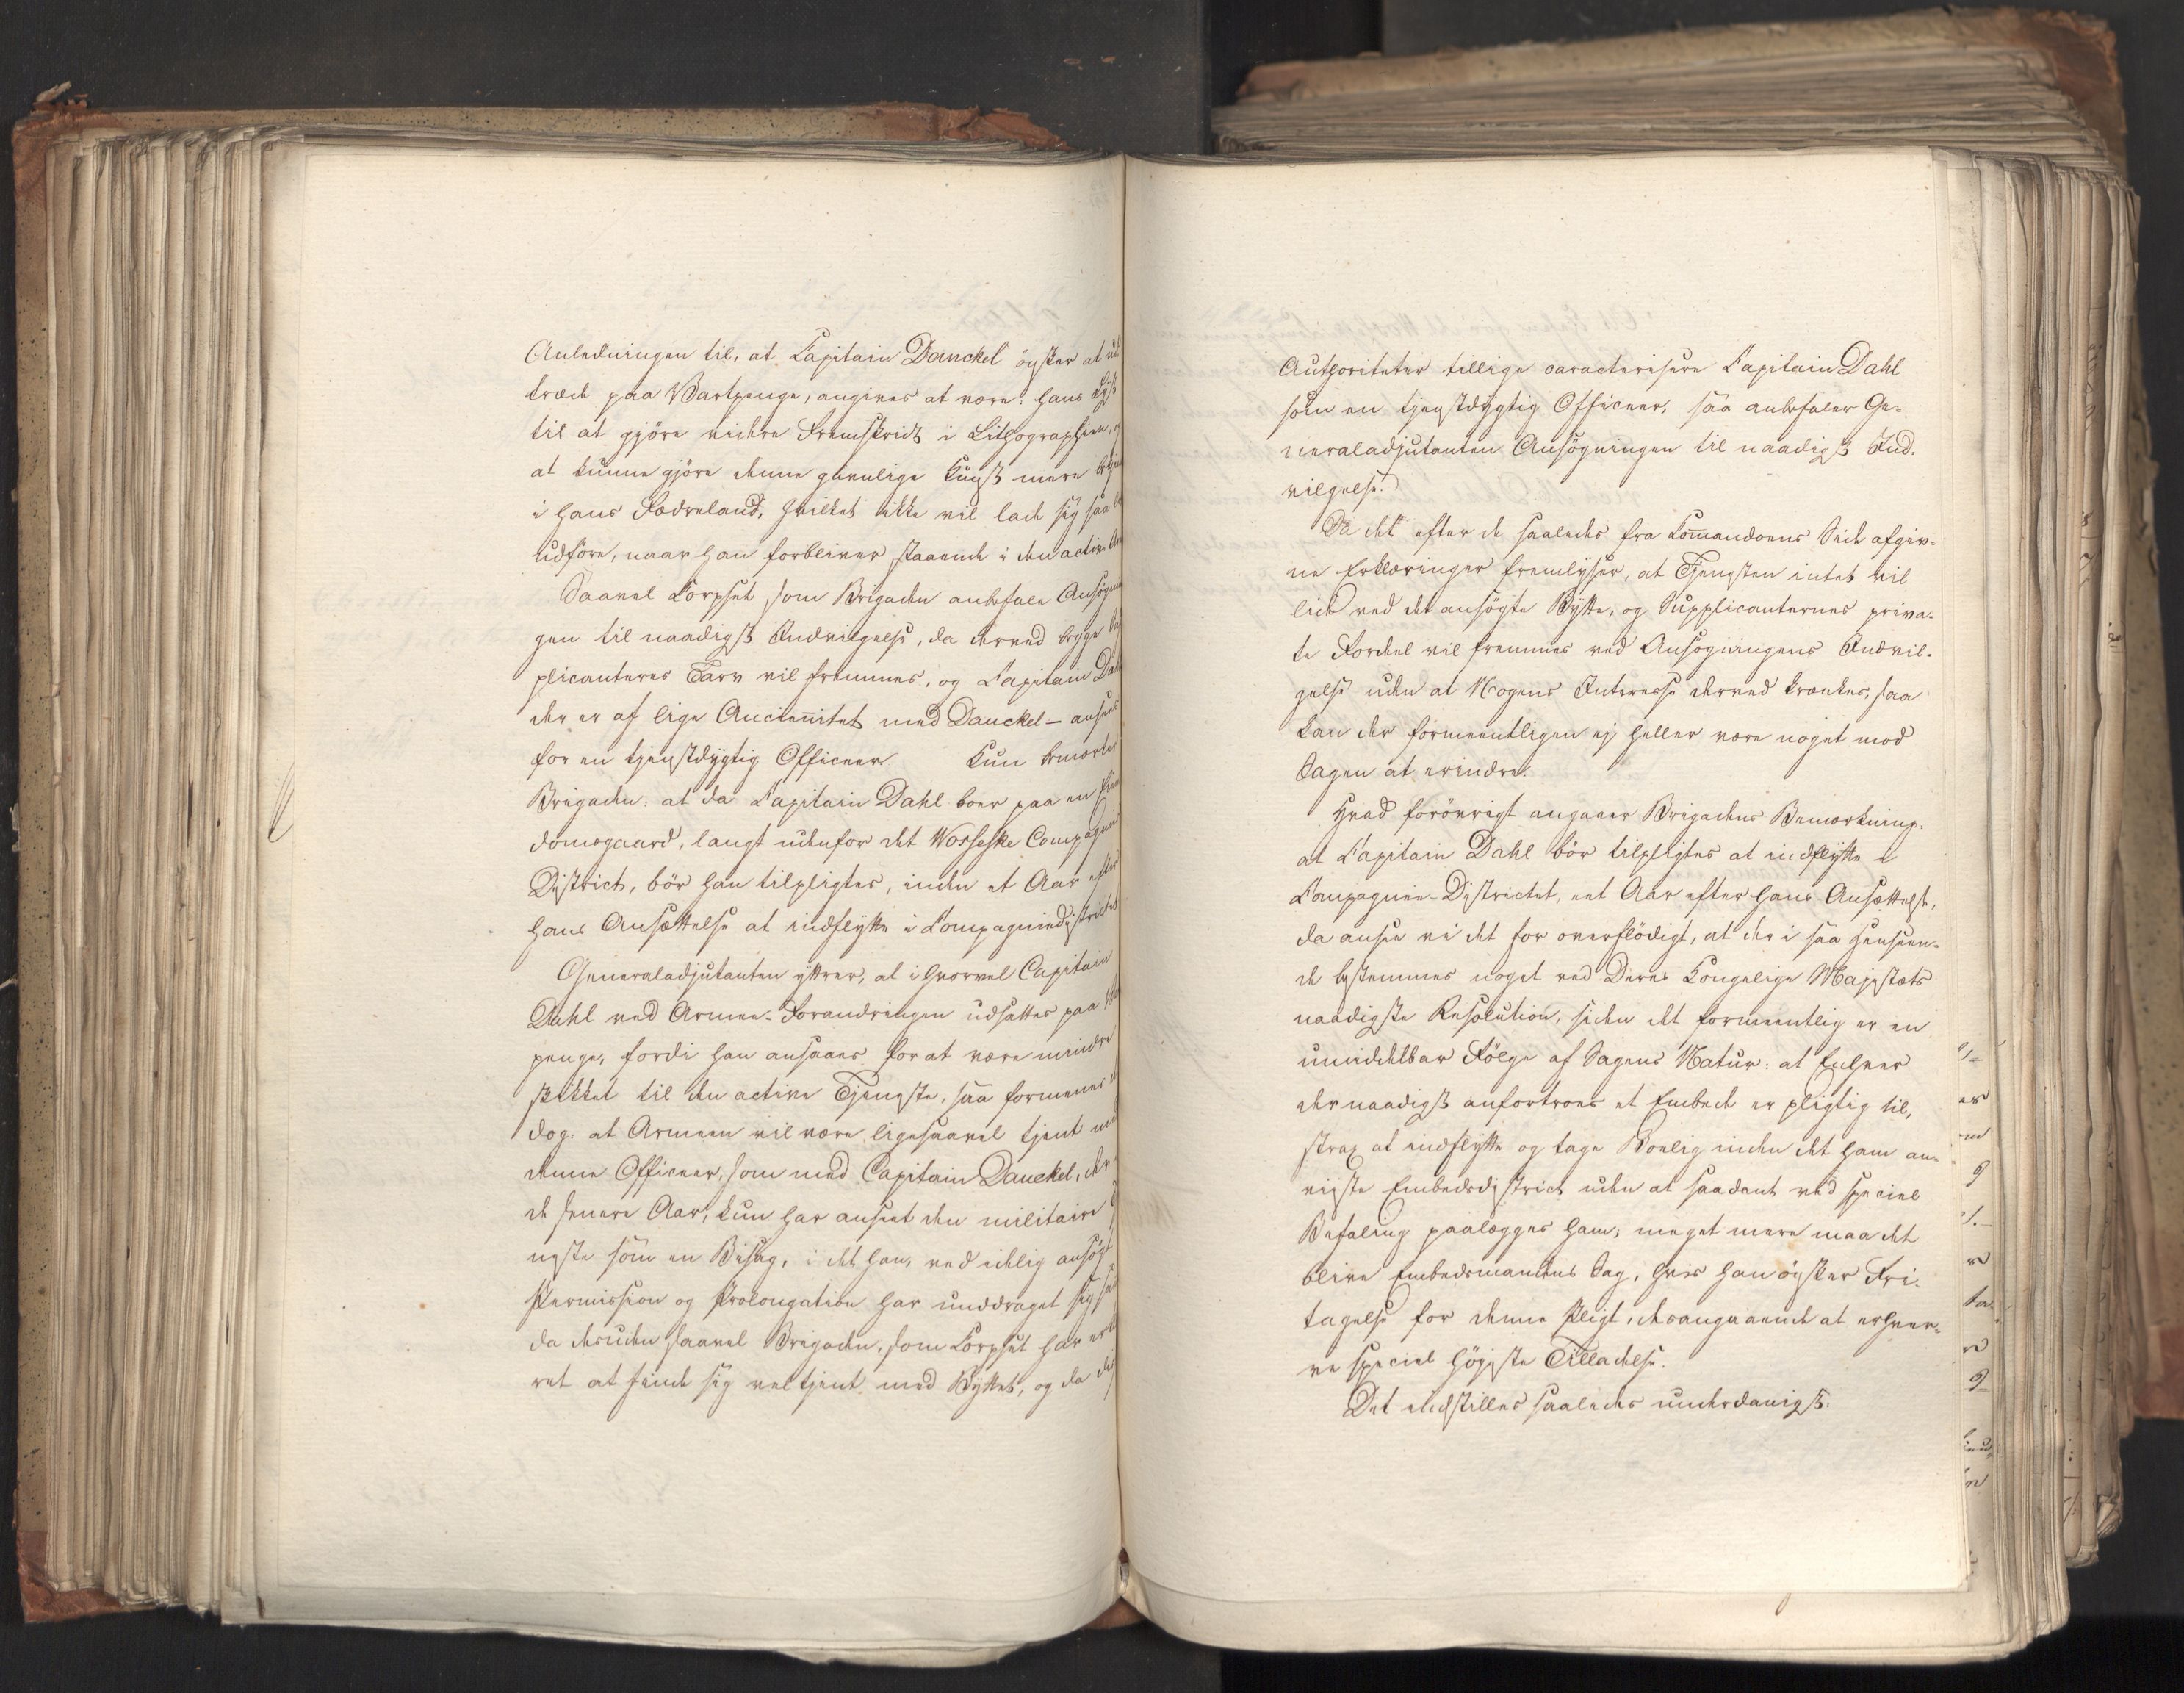 Anledningen til, at Capitain Danckel önsker at ud
træde paa Vartpenge, angives at være: hans Lyst
til at gjöre videre Fremskridt i Lithographien,
at kunne gjöre denne gavnlige Kunst mere
i hans Fædreland, hvilket ikke vil lade sig saa
udföre, naar han forbliver staaende i den active
Saavel Corpset som Brigaden anbefale Ansögnin
gen til naadigst Indvilgelse, da derved begge Sup
plicanteres Tarv vil fremmes, og Capitain Dahl
der er af lige Anciennitet med Danckel - ansees
for en tjenstdygtig Officeer Kun bemærker
Brigaden: at da Capitain Dahl boer paa en Eien
domsgaard, langt udenfor det Vosseske Compagnie
District, bör han tilpligtes, inden et Aar efter
hans Ansættelse at indflytte i Compagniedistrictet
Generaladjutanten yttrer, at i hvorvel Capitain
Dahl ved Armee-Forandringen udsattes paa Vart
penge, fordi han ansaaes for at være mindre
skikket til den active Tjeneste, saa formenes
dog: at Armeen vil være ligesaavel tjent med
denne Officeer, som med Capitain Danckel, der
de senere Aar, kun har anseet den militaire Tje
neste som en Bisag, i det han, ved idelig ansögt
Permission og Prolongation har unddraget sig
da desuden saavel Brigaden, som Corpset har erklæ
ret at finde sig vel tjent med Byttet, og da disse
Authoriteter tillige caracterisere Capitain Dahl
som en tjenstdygtig Officeer, saa anbefaler Ge-
neraladjutanten Ansögningen til naadigst Ind-
vilgelse.
Da det efter de saaledes fra Com̄andoens Side afgiv-
ne Erklæringer fremlyser, at Tjenesten intet vil
lide ved det ansögte Bytte, og Supplicanternes priva-
te Fordeel vil fremmes ved Ansögningens Indvil-
gelse uden at Nogens Interesse derved krænkes, saa
kan der formeentligen ej heller være noget mod
Sagen at erindre.
Hvad forövrigt angaaer Brigadens Bemærkning:
at Capitain Dahl bör tilpligtes at indflytte i
Compagnie-Districtet, eet Aar efter hans Ansættelse,
da ansee vi det for overflödigt, at der i saa Henseen-
de bestemmes noget ved Deres Kongelige Majestæts
naadigste Resolution, siden det formeentlig er en
umiddelbar Fölge af Sagens Natur: at Enhver
der naadigst anfortroes et Embede er pligtig til,
strax at indflytte og tage Boelig inden det ham an-
viiste Embedsdistrict uden at saadant ved speciel
Befaling paalægges ham; meget mere maa det
blive Embedsmandens Sag, hvis han önsker Fri-
tagelse for denne Pligt, desangaaende at erhver-
ve speciel höjeste Tilladelse.
Det indstilles saaledes underdanigst: